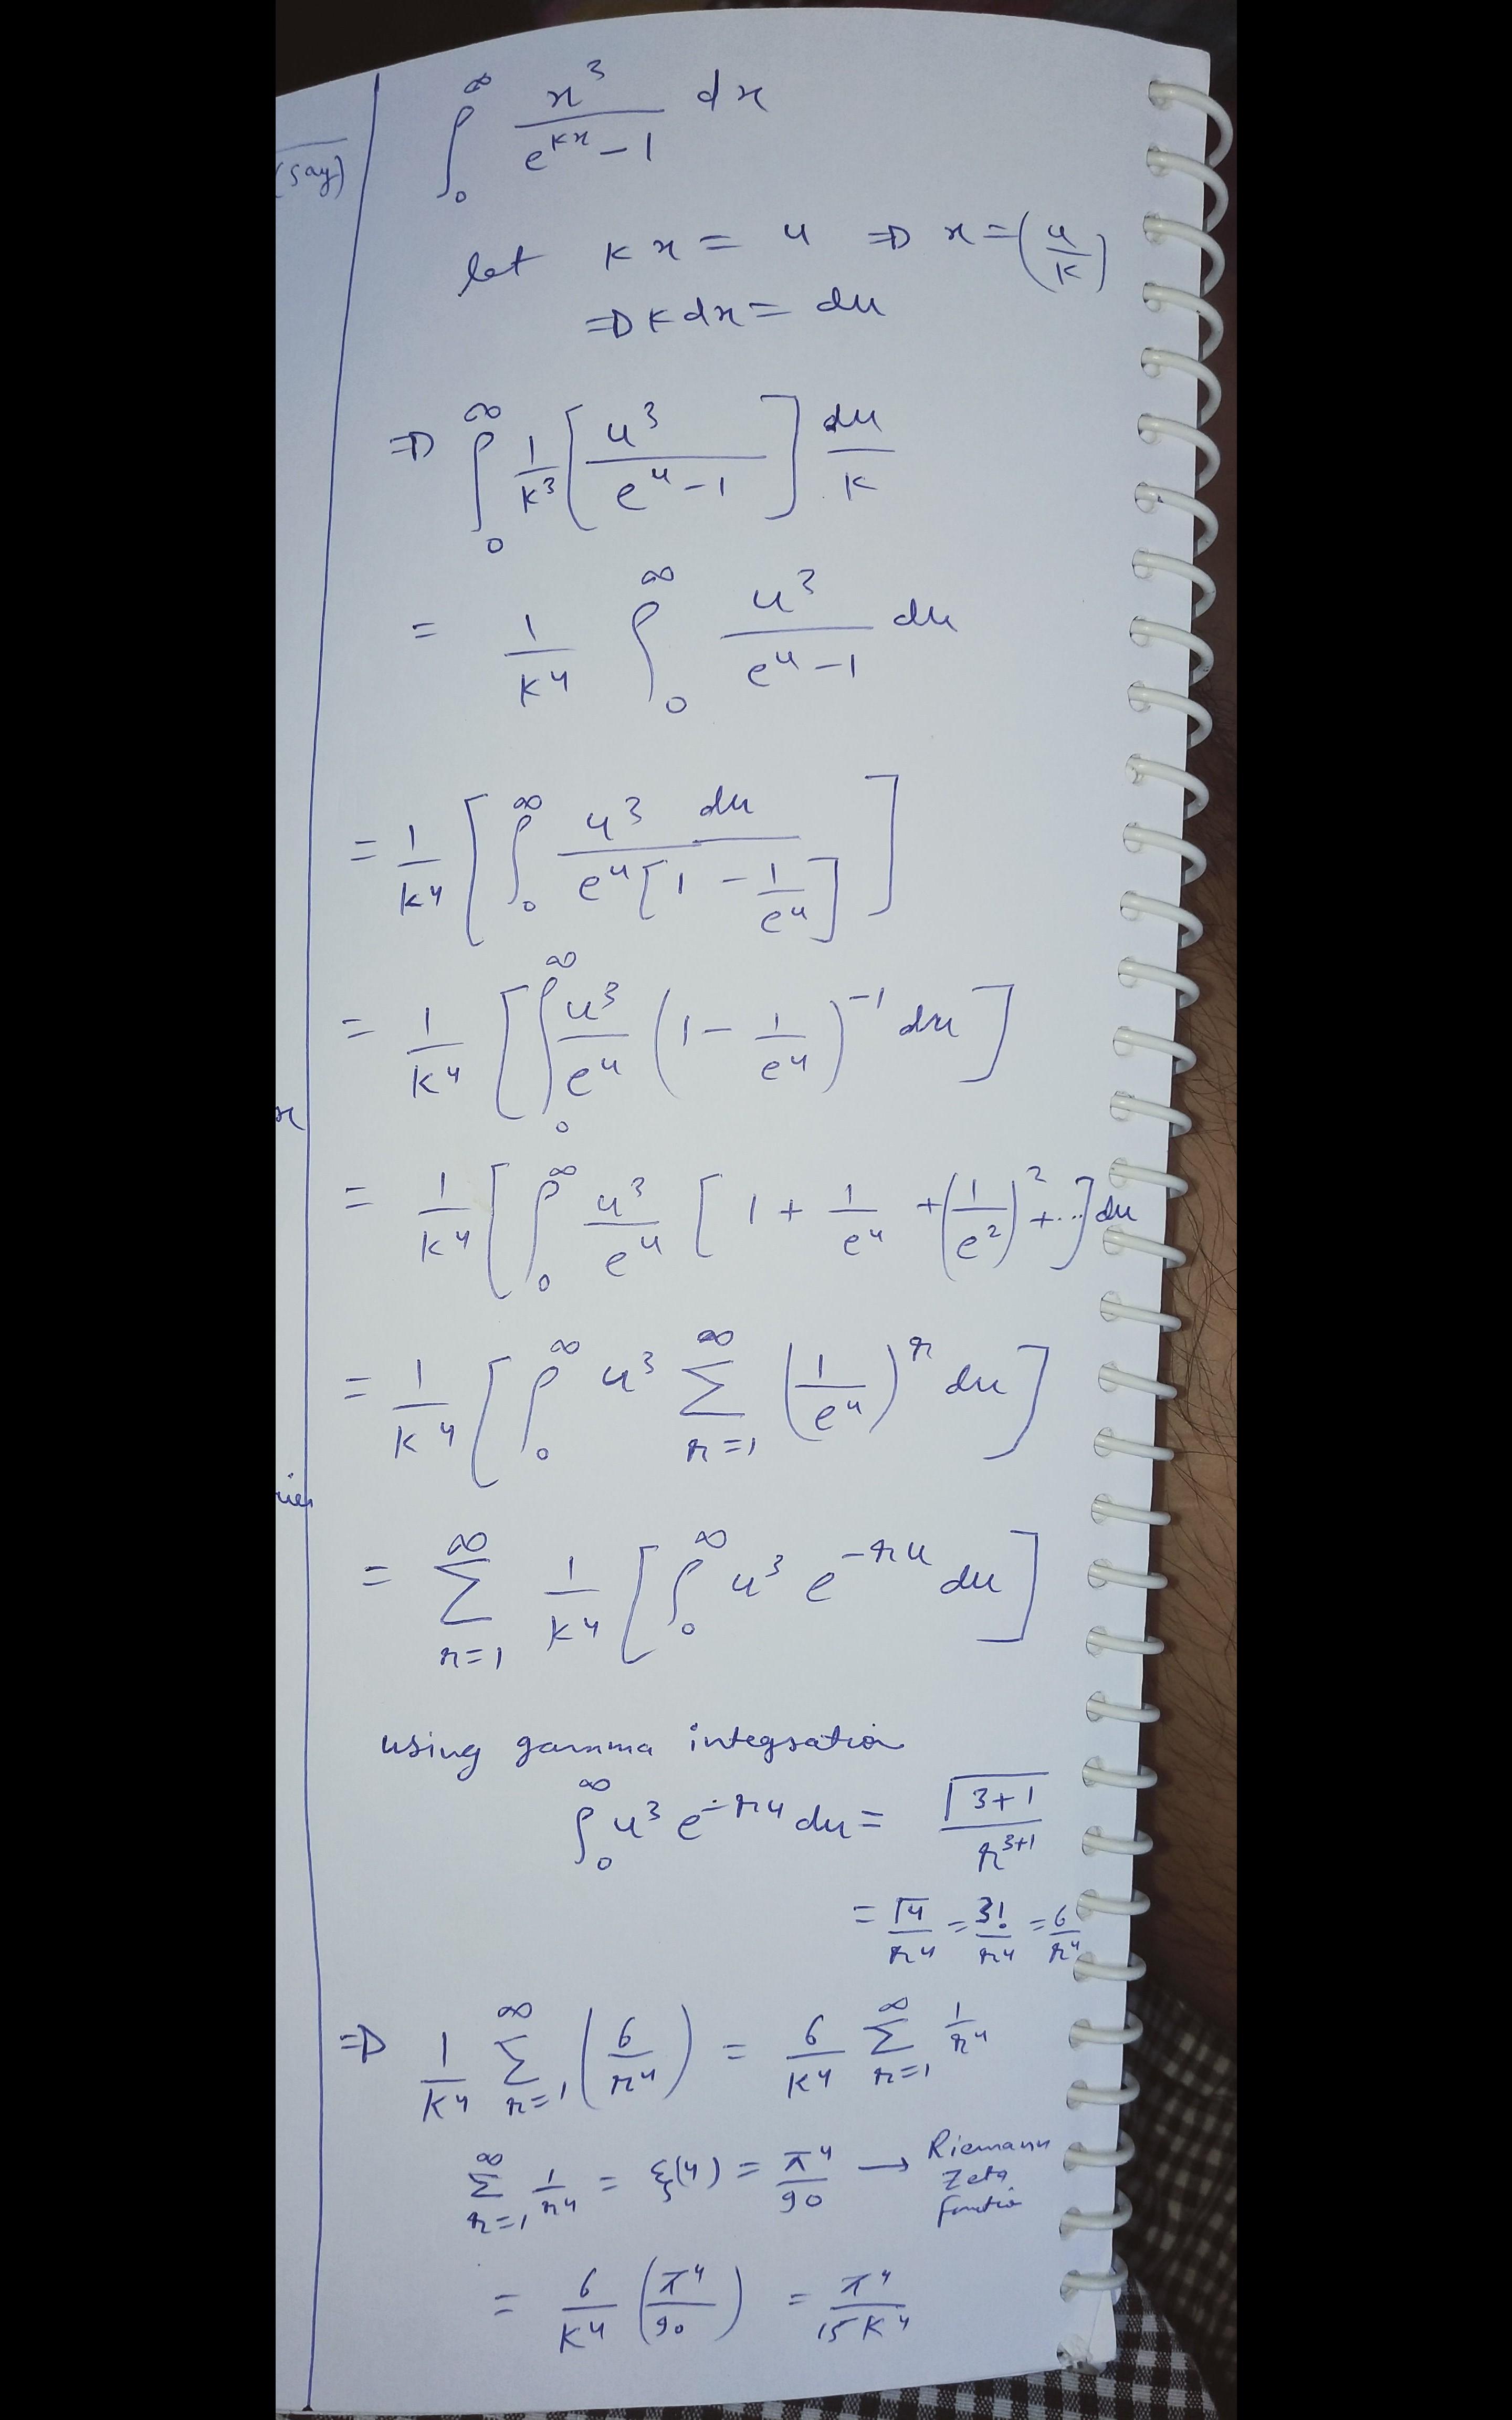 (say)
∫₀^∞ x³/(e^{kx} − 1) dx
let kx = u ⇒ x = (u/k)
⇒ k dx = du
⇒ ∫₀^∞ 1/k³ [u³/(e^u − 1)] du/k
= 1/k⁴ ∫₀^∞ u³/(e^u − 1) du
= 1/k⁴ [∫₀^∞ u³ du/(e^u [1 − 1/e^u])]
= 1/k⁴ [∫₀^∞ u³/e^u (1 − 1/e^u)^{−1} du]
x
= 1/k⁴ [∫₀^∞ u³/e^u [1 + 1/e^u + (1/e²)² + ...] du
= 1/k⁴ [∫₀^∞ u³ ∑_{r=1}^∞ (1/e^u)^r du]
= ∑_{r=1}^∞ 1/k⁴ [∫₀^∞ u³ e^{−ru} du]
using gamma integration
∫₀^∞ u³ e^{−ru} du = Γ3+1/r^{3+1}
= Γ4/r⁴ = 3!/r⁴ = 6/r⁴
⇒ 1/k⁴ ∑_{r=1}^∞ (6/r⁴) = 6/k⁴ ∑_{r=1}^∞ 1/r⁴
∑_{r=1}^∞ 1/r⁴ = ξ(4) = π⁴/90 → Riemann
Zeta
function
= 6/k⁴ (π⁴/90) = π⁴/15k⁴